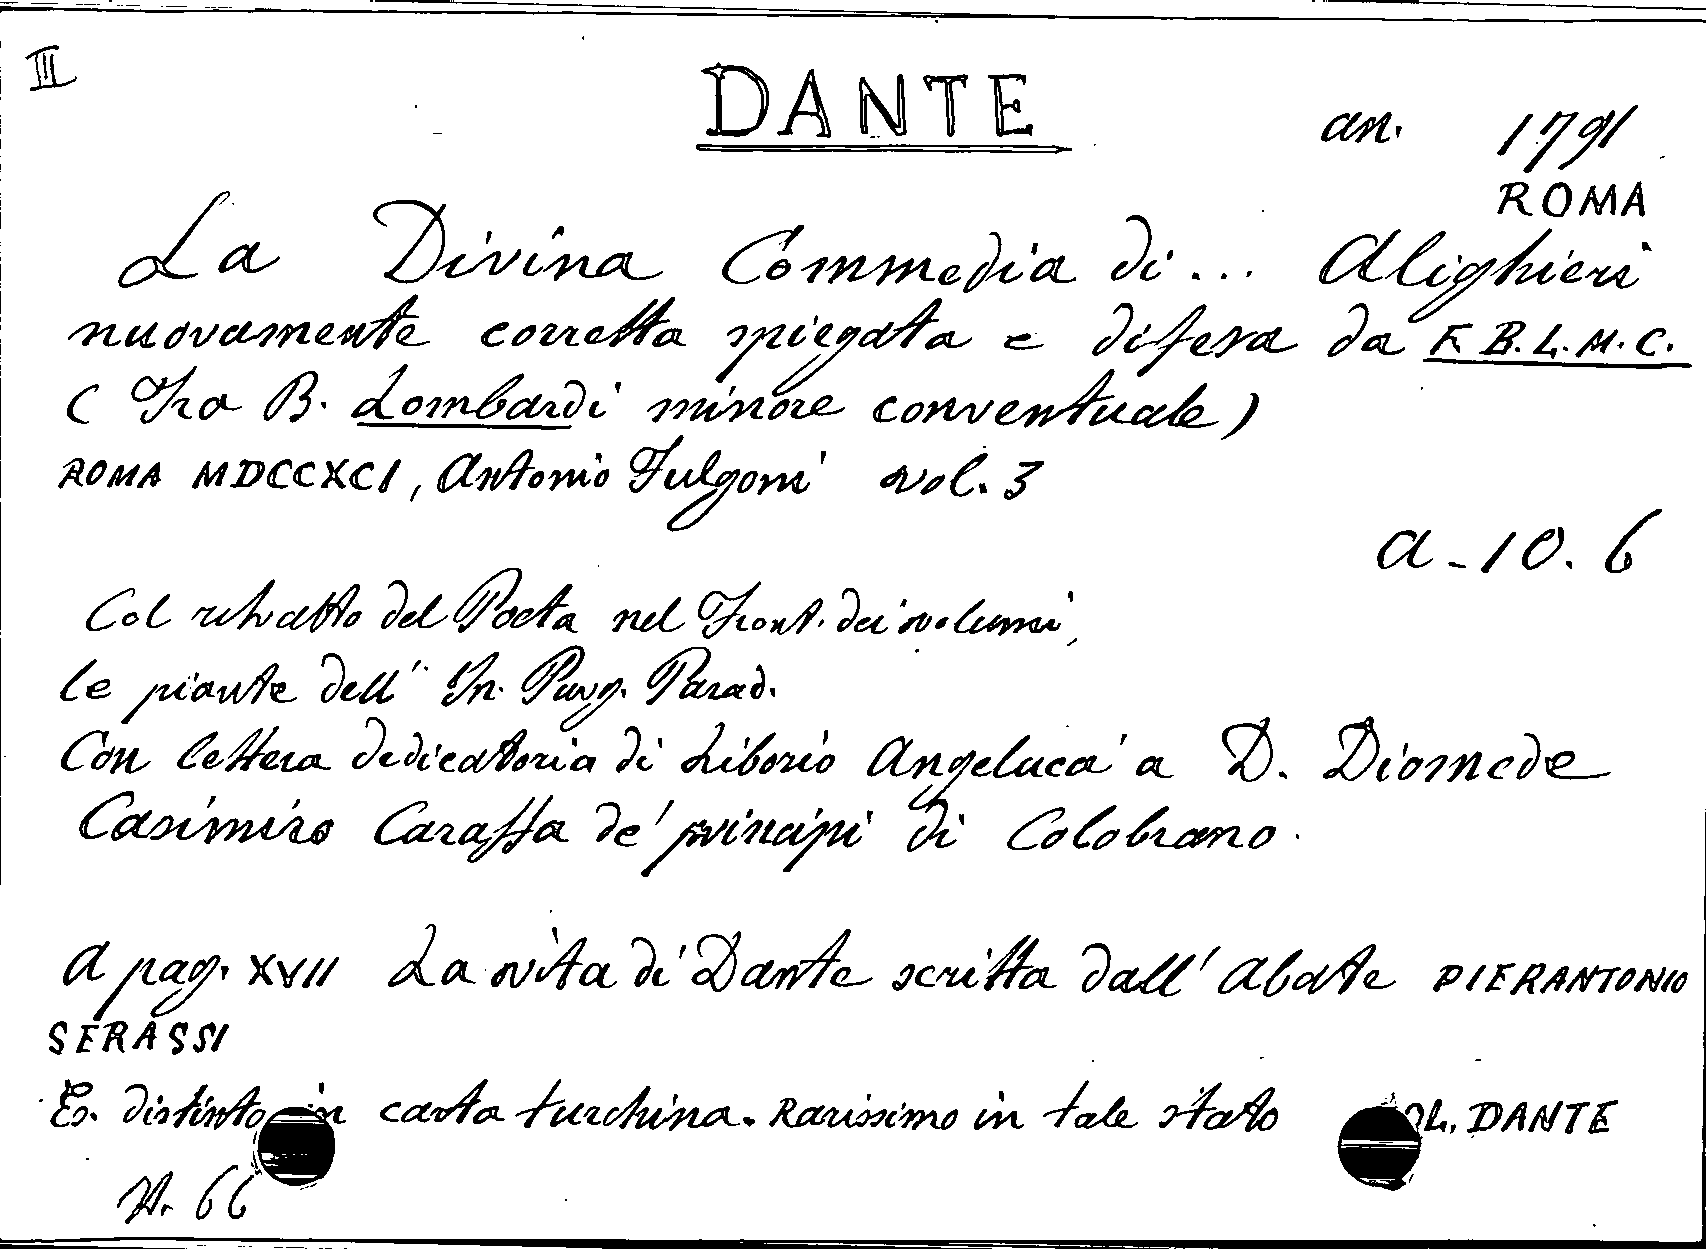 III
DANTE
an. 1791
ROMA
La Divina Commedia di... Alighieri
nuovamente corretta spiegata e difesa da F. B. L. M. C.
( Fra B. Lombardi minore conventuale)
ROMA MDCCXCI, Antonio Fulgoni vol. 3
a - 10. 6
Col ritratto del Poeta nel Front. dei volumi,
le piante dell' In. Purg. Parad.
Con lettera dedicatoria di Liborio Angelucci a D. Diomede
Casimiro Caraffa de' principi di Colobrano.
A pag. XVII La vita di Dante scritta dall' Abate PIERANTONIO
SERASSI
Es. distinto in carta turchina. Rarissimo in tale stato OL. DANTE
N. 66